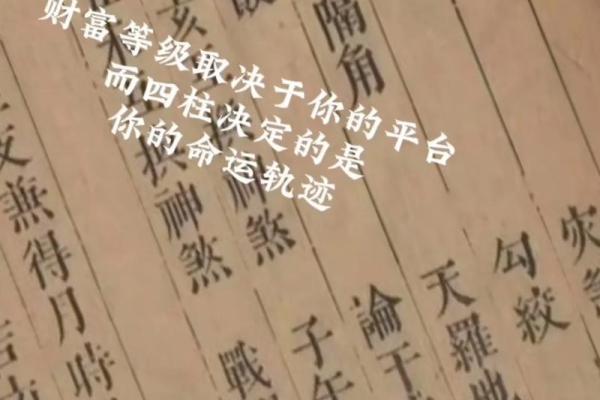 财富等级取决于你的平台
而四柱决定的是
你的命运轨迹
勾絞
天羅
論干
隔角
子午
神煞
戰
亥
神煞
時
無得月